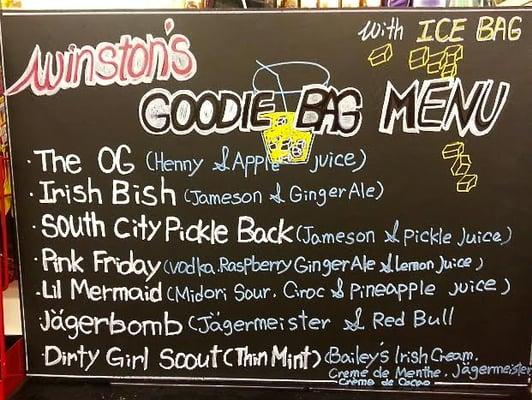 Winston's
With ICE BAG
GOODIE BAG MENU
· The OG (Henny & Apple juice)
· Irish Bish (Jameson & Ginger Ale)
· South City Pickle Back (Jameson & Pickle Juice)
· Pink Friday (vodka. Raspberry Ginger Ale & Lemon Juice)
· Lil Mermaid (Midori Sour. Ciroc & Pineapple juice)
· Jägerbomb (Jägermeister & Red Bull
· Dirty Girl Scout (Thin Mint) (Bailey's Irish Cream.
Creme de Menthe. Jägermeister
Creme de Cacao